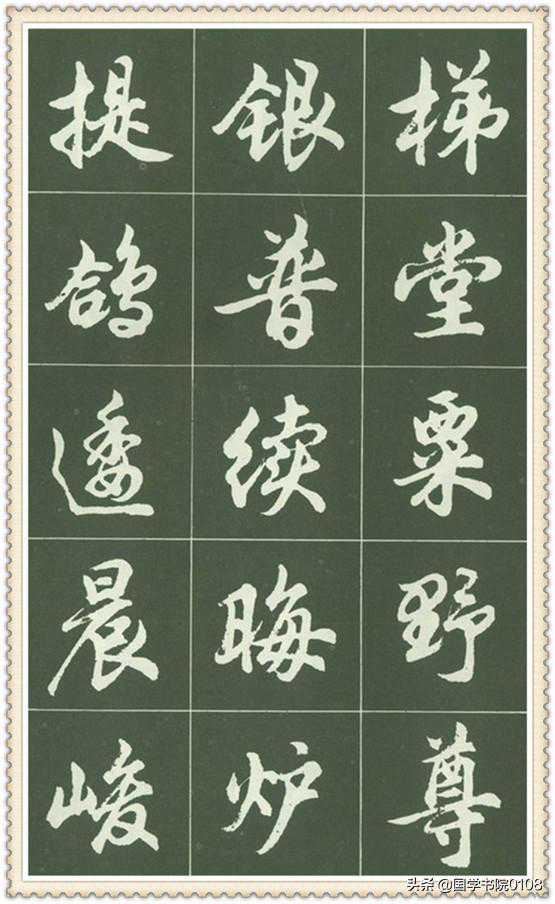 梯堂粟野尊
银普续晦炉
提鸽逶晨峻
头条 @国学书院0108